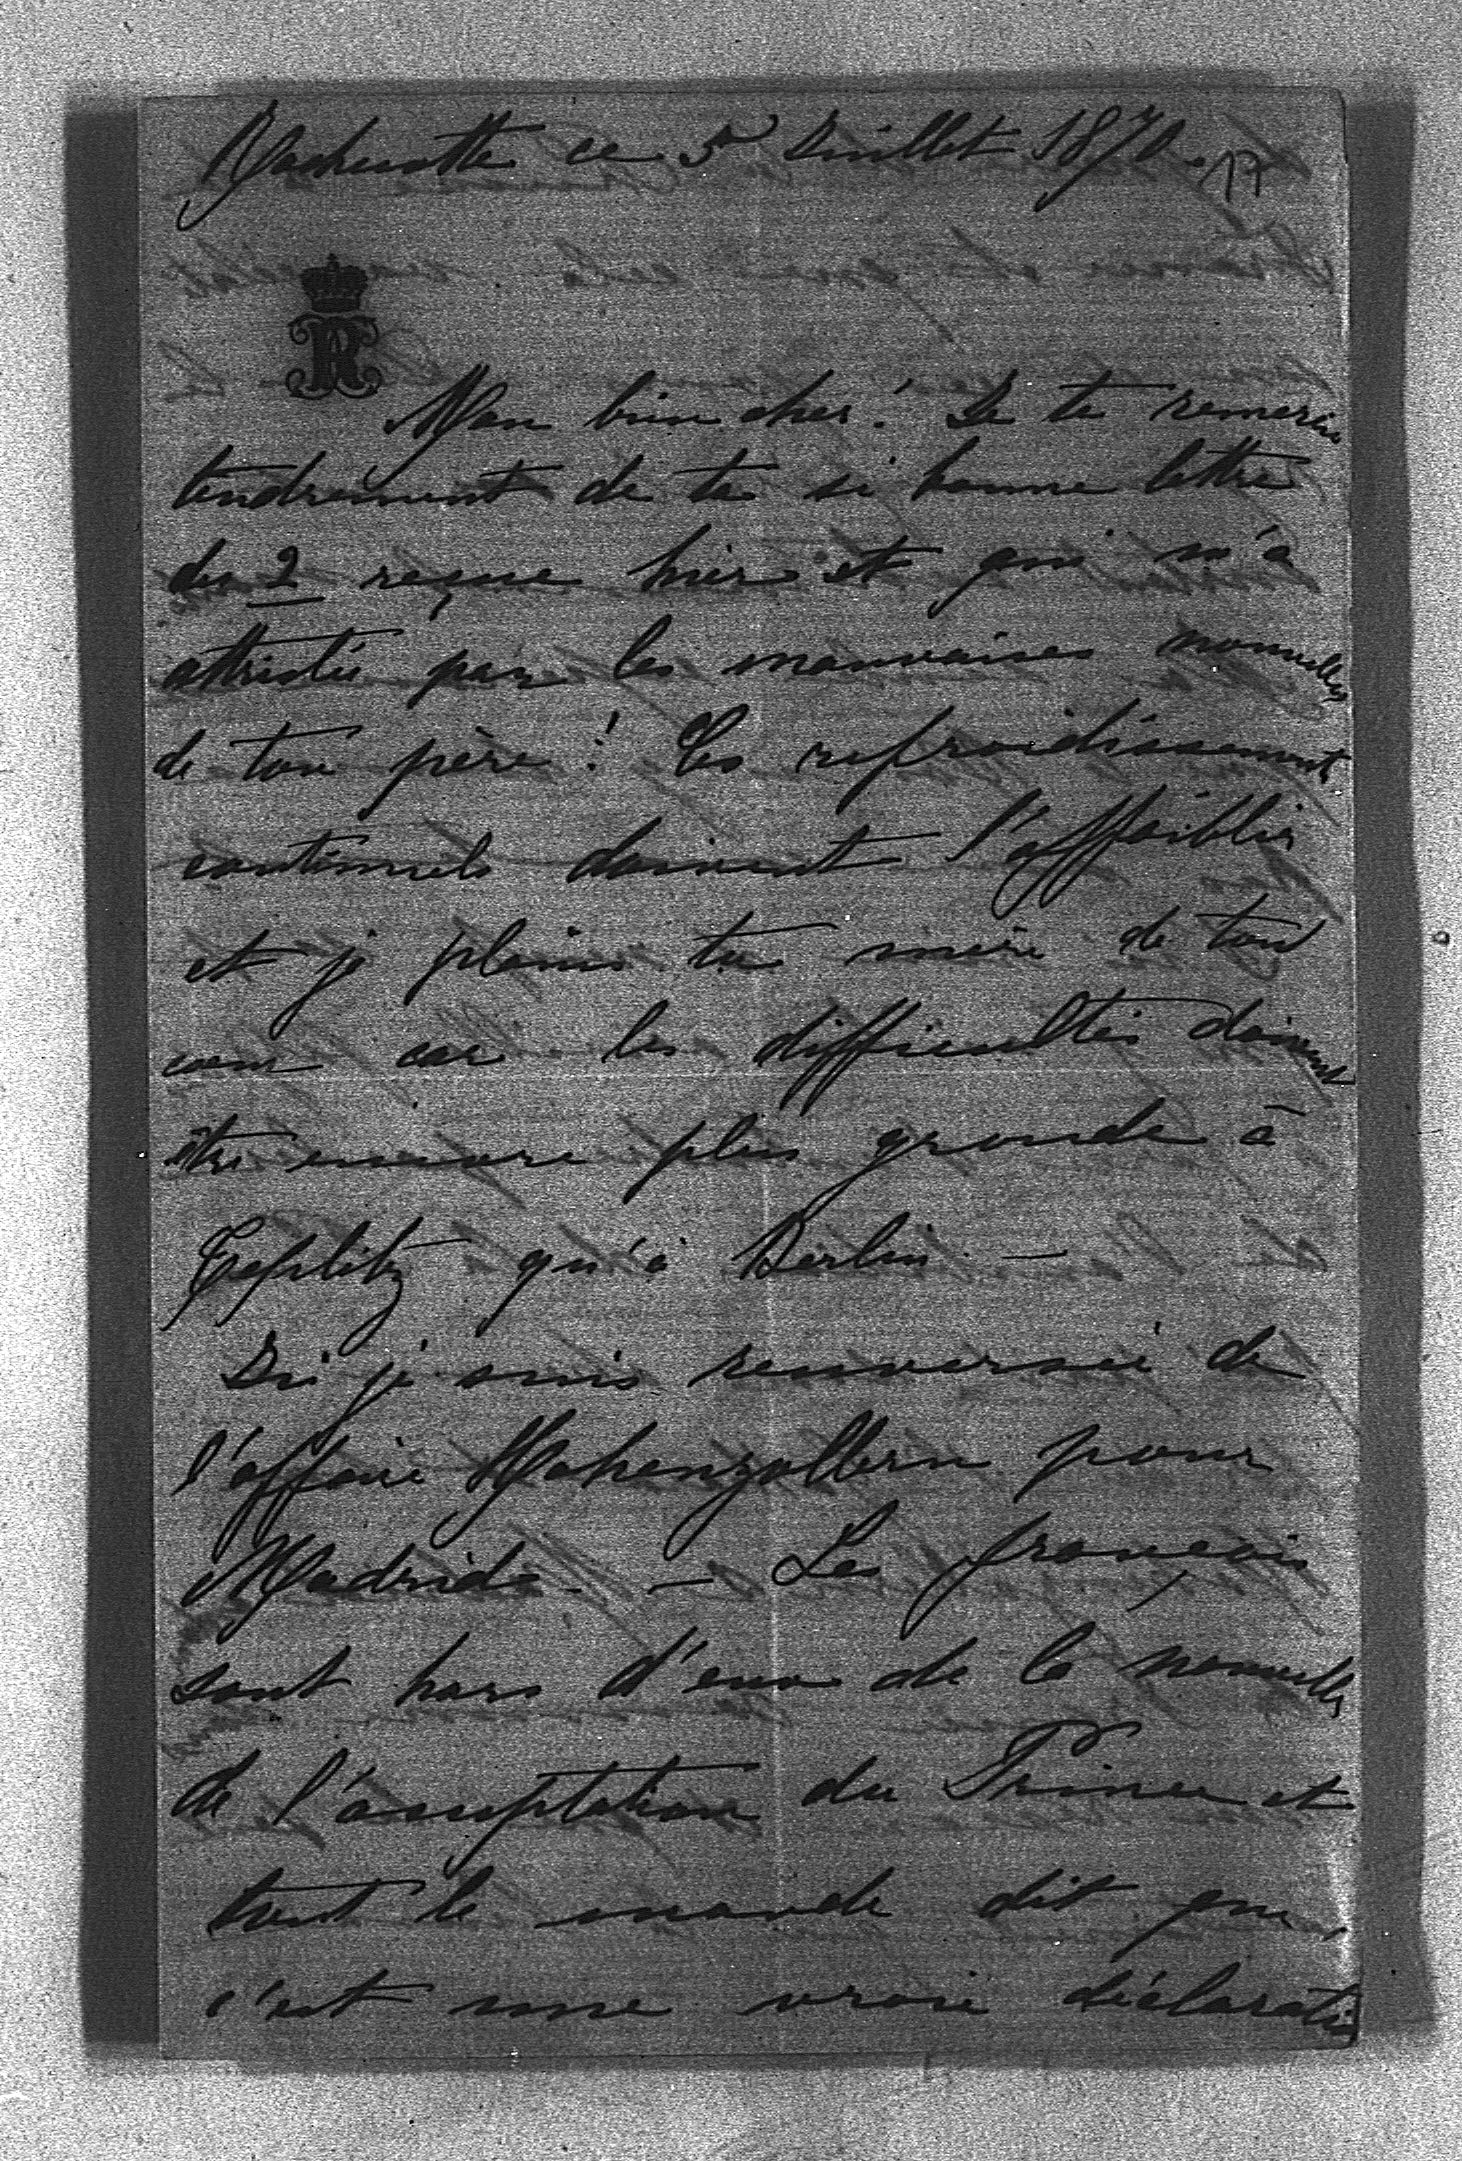 Rochecotte ce 5 Juillet 1870. 17
Mon bien cher! Je te remercie
tendrement de ta si bonne lettre
du 2 reçue hier et qui m'a
attristée par les mauvaises nouvelles
de ton père! Ces refroidissement
continuels doivent l'affaiblir
et je plains ta mère de tout
cœur car les difficultés doivent
être encore plus grande à
Teplitz qu'à Berlin —
Ici je suis renversée de
l'affaire Hohenzollern pour
Madrid. — Les français
sont hors d'eux de la nouvelle
de l'acceptation du Prince et
tout le monde dit que
c'est une vraie déclaration